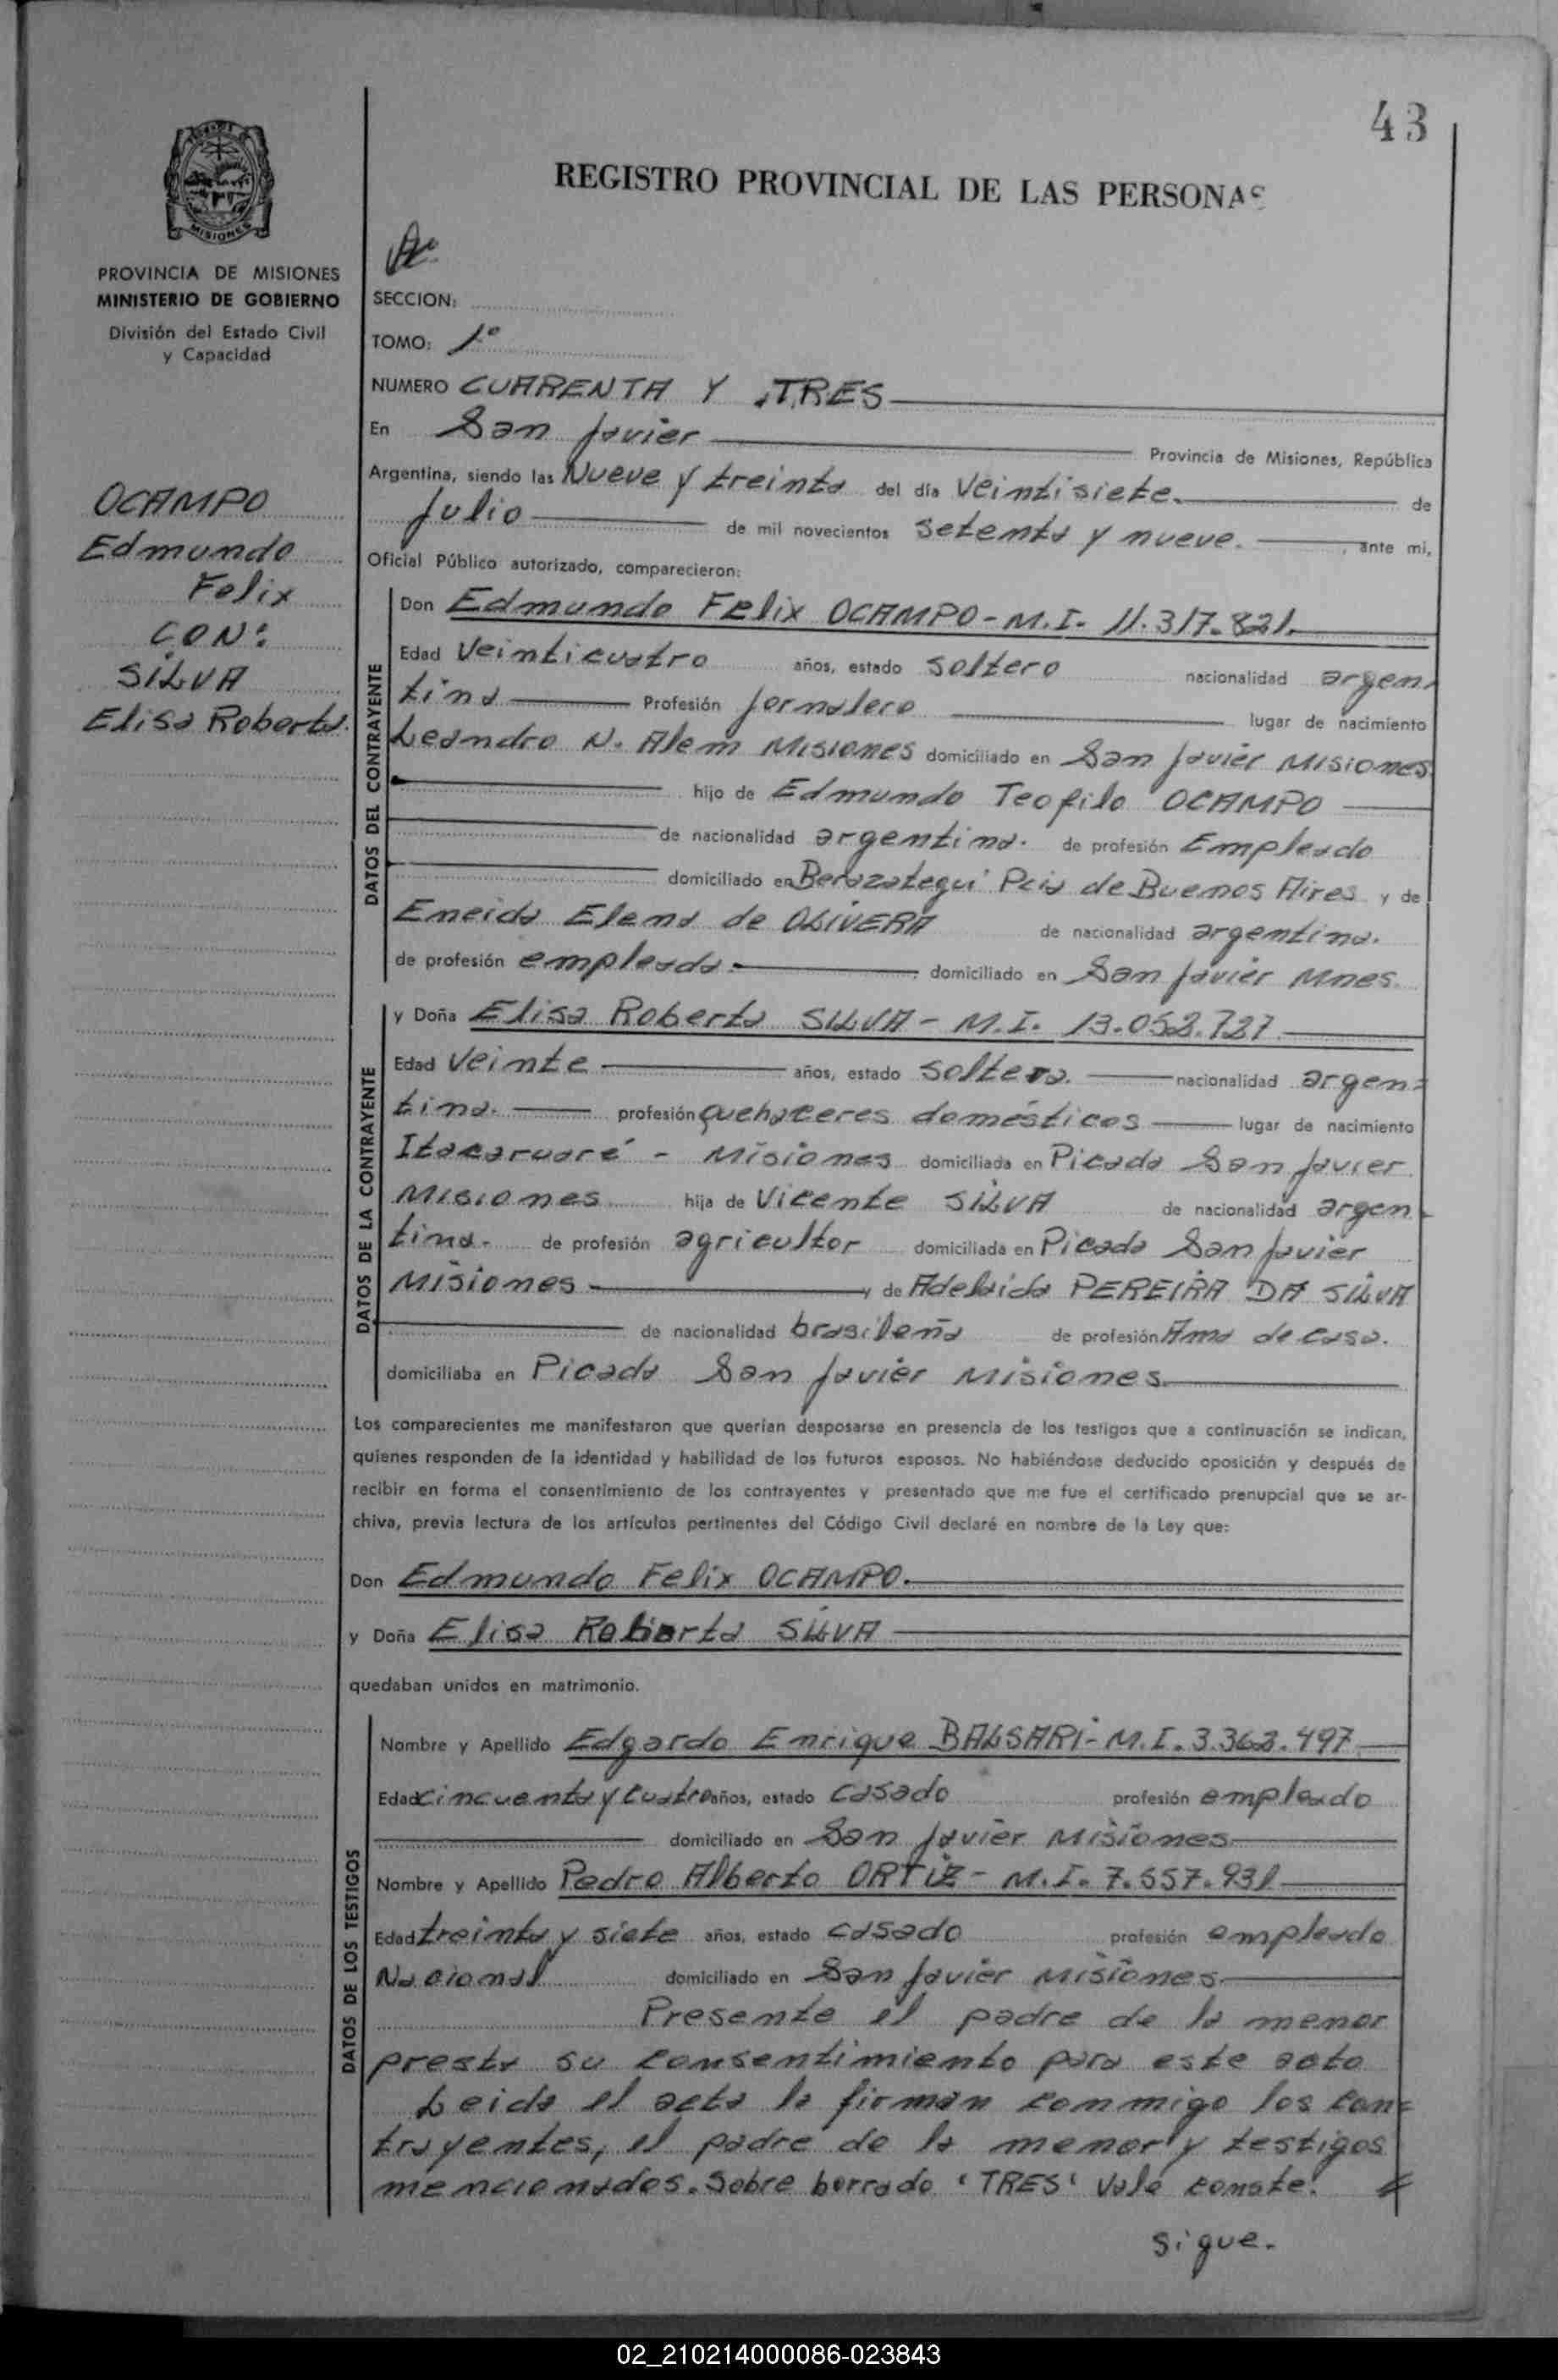 43
REGISTRO PROVINCIAL DE LAS PERSONAS
MISIONES
PROVINCIA DE MISIONES
MINISTERIO DE GOBIERNO
División del Estado Civil
y Capacidad
OCAMPO
Edmundo
Felix
CON:
SILVA
Elisa Roberta.
SECCION:
TOMO: 1º
NUMERO CUARENTA Y TRES
En San Javier Provincia de Misiones, República
Argentina, siendo las Nueve y treinta del día Veintisiete. de
Julio de mil novecientos setenta y nueve. , ante mi,
Oficial Público autorizado, comparecieron:
DATOS DEL CONTRAYENTE
Don Edmundo Felix OCAMPO - M.I. 11.317.821.
Edad Veinticuatro años, estado soltero nacionalidad argen-
tina Profesión Jornalero lugar de nacimiento
Leandro N. Alem Misiones domiciliado en San Javier Misiones
hijo de Edmundo Teofilo OCAMPO
de nacionalidad argentina. de profesión Empleado
domiciliado en Berazategui Pcia de Buenos Aires y de
Eneida Elena de OLIVERA de nacionalidad argentina.
de profesión empleada. domiciliado en San Javier Mnes.
DATOS DE LA CONTRAYENTE
y Doña Elisa Roberta SILVA - M.I. 13.052.727
Edad Veinte años, estado Soltera. nacionalidad argen=
tina. profesión Quehaceres domésticos lugar de nacimiento
Itacaruaré - Misiones domiciliada en Picada San Javier
Misiones hija de Vicente SILVA de nacionalidad argen-
tina. de profesión agricultor domiciliada en Picada San Javier
Misiones y de Adelaida PEREIRA DA SILVA
de nacionalidad brasileña de profesión Ama de casa.
domiciliaba en Picada San Javier Misiones.
Los comparecientes me manifestaron que querían desposarse en presencia de los testigos que a continuación se indican,
quienes responden de la identidad y habilidad de los futuros esposos. No habiéndose deducido oposición y después de
recibir en forma el consentimiento de los contrayentes y presentado que me fue el certificado prenupcial que se ar-
chiva, previa lectura de los artículos pertinentes del Código Civil declaré en nombre de la Ley que:
Don Edmundo Felix OCAMPO.
y Doña Elisa Roberta SILVA
quedaban unidos en matrimonio.
DATOS DE LOS TESTIGOS
Nombre y Apellido Edgardo Enrique BALSARI - M.I. 3.362.497
Edad cincuenta y cuatro años, estado casado profesión empleado
domiciliado en San Javier Misiones
Nombre y Apellido Pedro Alberto ORTIZ - M.I. 7.557.931
Edad treinta y siete años, estado casado profesión empleado
Nacional domiciliado en San Javier Misiones.
Presente el padre de la menor
presta su consentimiento para este acto
Leida el acta la firman conmigo los con=
trayentes, el padre de la menor y testigos
mencionados. Sobre borrado "TRES" Vale conste.
sigue.
02_210214000086-023843